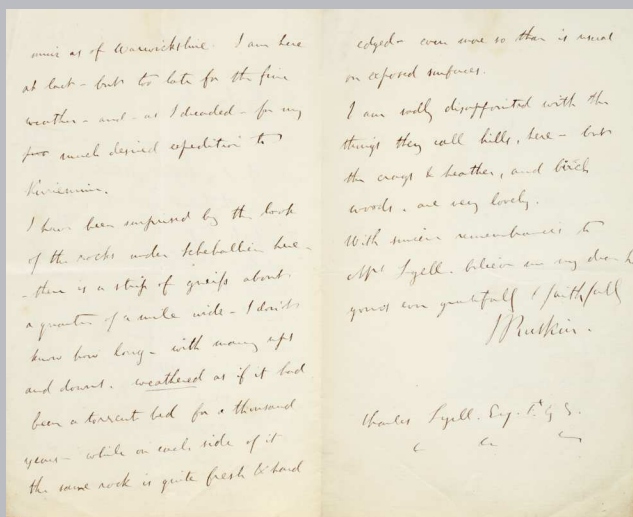 as of Warwickshire. I am here
at last - but too late for the fine
weather - and - as I dreaded - for my
much desired expedition to
Kinnordy.
I have been surprised by the look
of the rocks under Schehallien here -
- there is a strip of gneiss about
a quarter of a mile wide - I don't
know how long - with many ups
and downs. weathered as if it had
been a torrent bed for a thousand
years - while on each side of it
the same rock is quite fresh & hard
edged - even more so than is usual
on exposed surfaces.
I am sadly disappointed with the
things they call hills, here - but
the crags & heather, and birch
woods. are very lovely.
With sincere remembrances to
Mrs Lyell. believe me my dear
yours ever gratefully & faithfully
J Ruskin.
Charles Lyell. Esq.